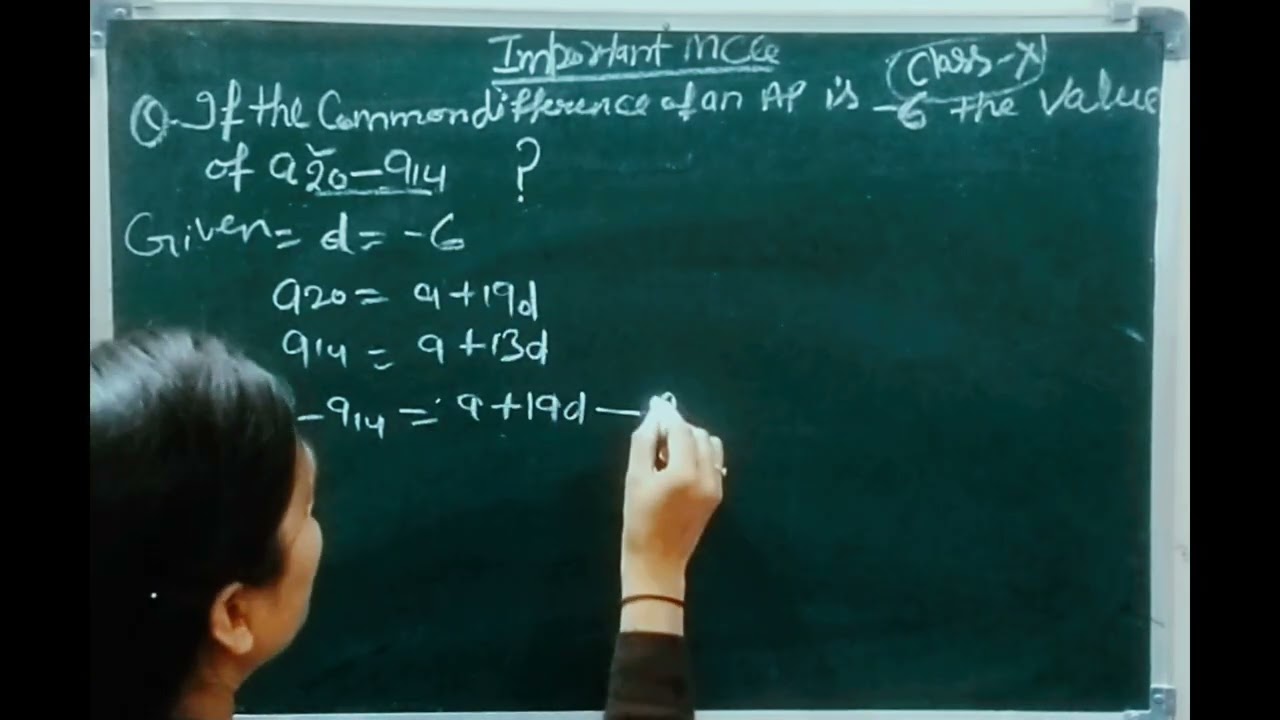 Important MCQ
Class-X
Q. If the Common difference of an AP is -6 the value
of a20-a14 ?
Given = d = -6
a20 = a+19d
a14 = a+13d
-a14 = a+19d-